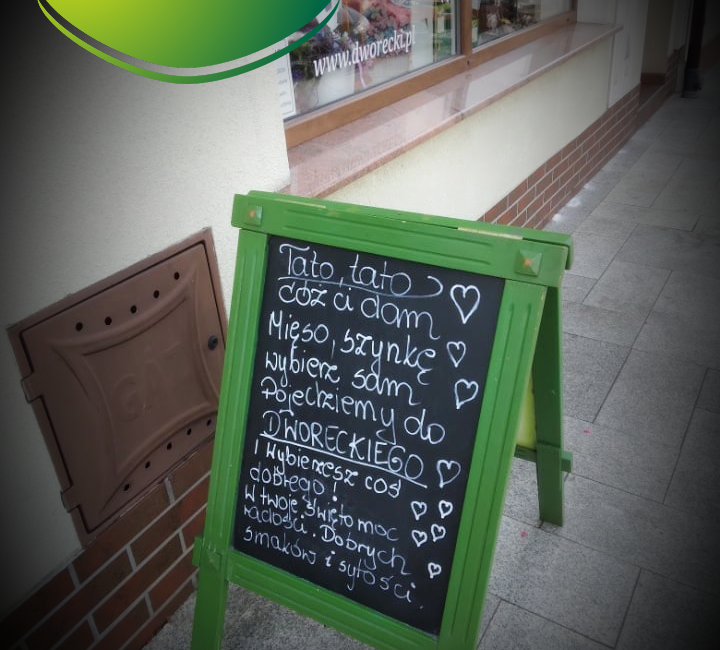 www.dworecki.pl
Tato, tato
cóż ci dam
Mięso, szynkę
wybierz sam
Pojedziemy do
DWORECKIEGO
i wybierzesz coś
dobrego!
W twoje święto moc
radości. Dobrych
smaków i sytości.
GAZ